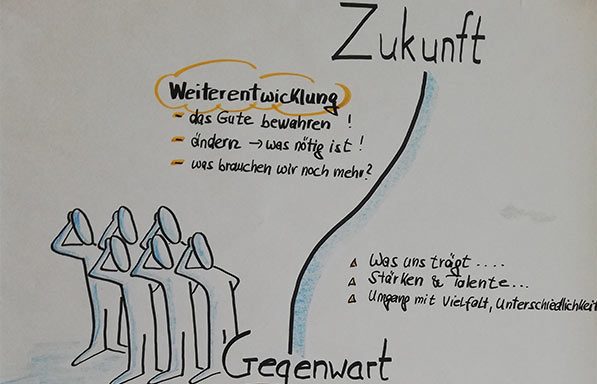 Zukunft
Weiterentwicklung
- das Gute bewahren !
- ändern → was nötig ist !
- was brauchen wir noch mehr?
Was uns trägt ....
Stärken & Talente...
Umgang mit Vielfalt, Unterschiedlichkeit
Gegenwart